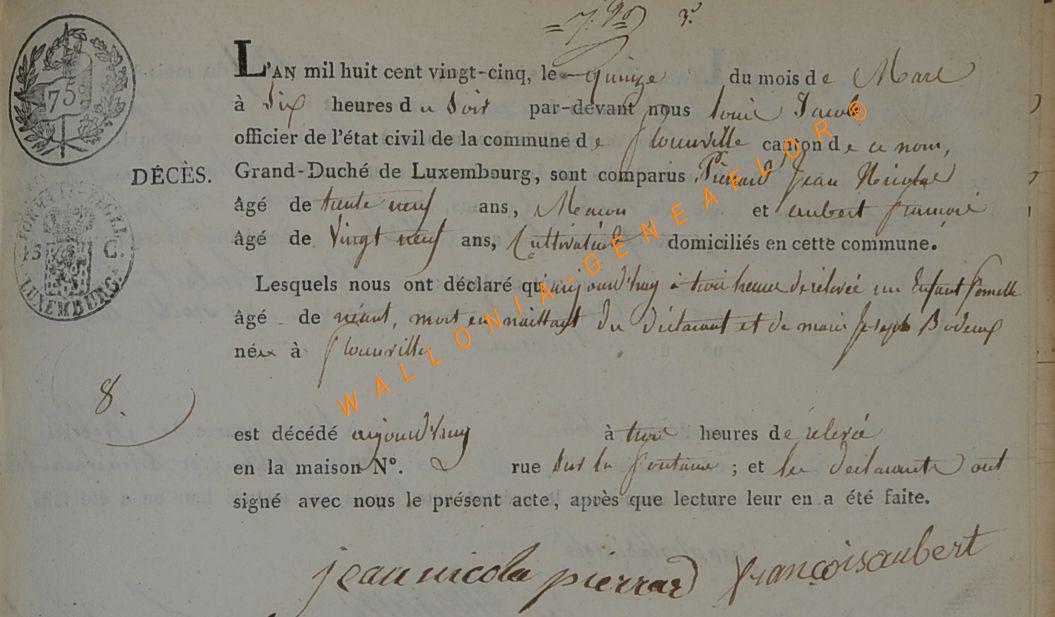 3.
L'AN mil huit cent vingt-cinq, le quinze du mois de Mars
à Six heures du Soir par-devant nous Louis Jacob
officier de l'état civil de la commune de florenville canton de ce nom,
DÉCÈS. Grand-Duché de Luxembourg, sont comparus Pierrard Jean Nicolas
âgé de trente neuf ans, Macon et aubert francois
âgé de Vingt neuf ans, Cultivateur domiciliés en cette commune.
Lesquels nous ont déclaré qu'aujourd'huy à trois heures de relevée un Enfant femelle
âgé de néant, mort en naissant du déclarant et de marie Joseph Bodeux
née à florenville
8.
est décédé aujourd'huy à trois heures de relevée
en la maison N°. rue sur la fontaine ; et les declarants ont
signé avec nous le présent acte, après que lecture leur en a été faite.
jean nicola pierrard françois aubert
75
LUXEMBURG
WALLONIA-GENEAFLOR ®